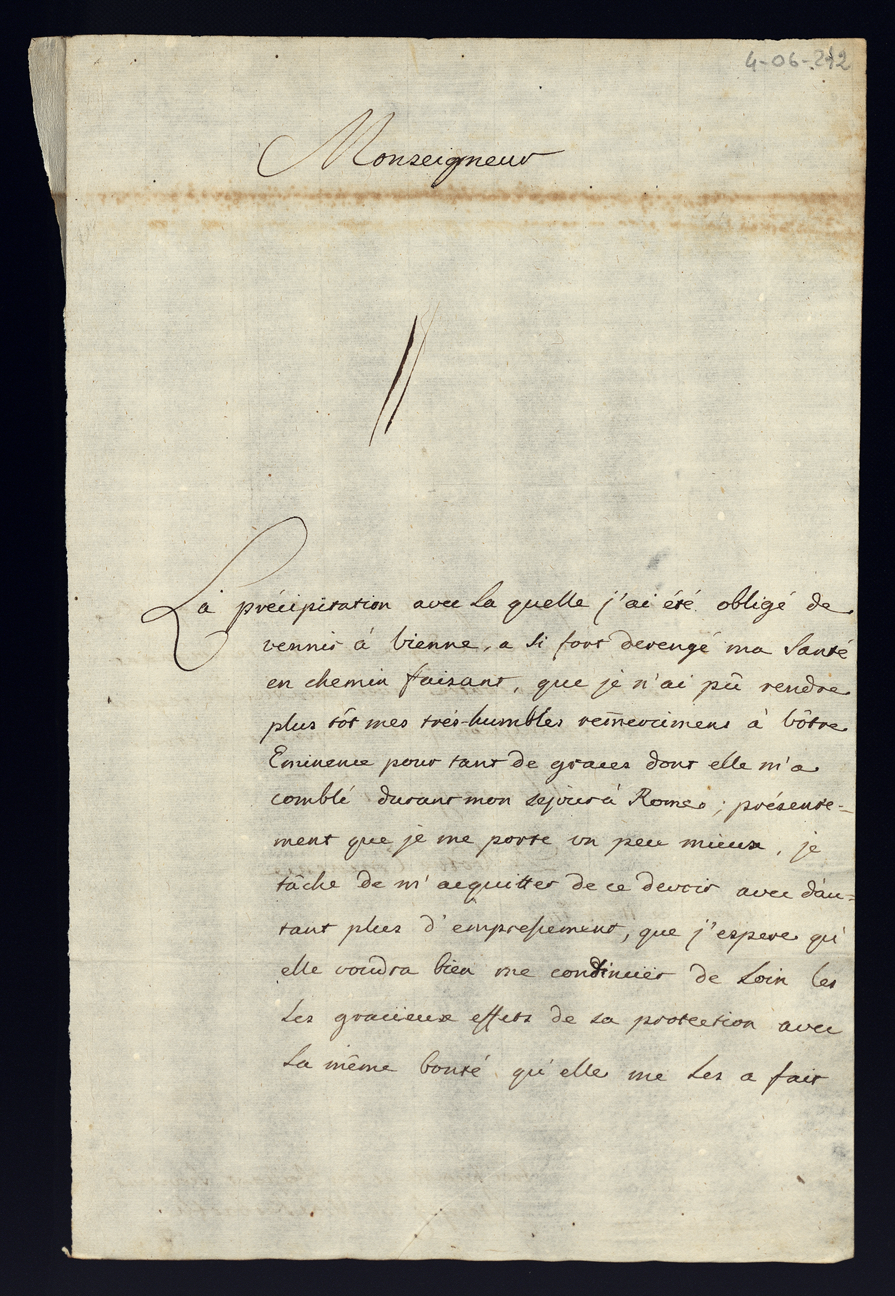 4-06-212
Monseigneur
La précipitation avec la quelle j'ai été obligé de
vennir à vienne, a si fort derengé ma santé
en chemin faisant, que je n'ai pû rendre
plus tôt mes trés-humbles remercimens à vôtre
Eminence pour tant de graces dont elle m'a
comblé durant mon sejour à Rome; présente-
ment que je me porte un peu mieux, je
tâche de m'acquitter de ce devoir avec d'au=
tant plus d'empressement, que j'espere qu'
elle voudra bien me continuër de loin les
les gracieux effets de sa protection avec
la même bonté qu'elle me les a fait